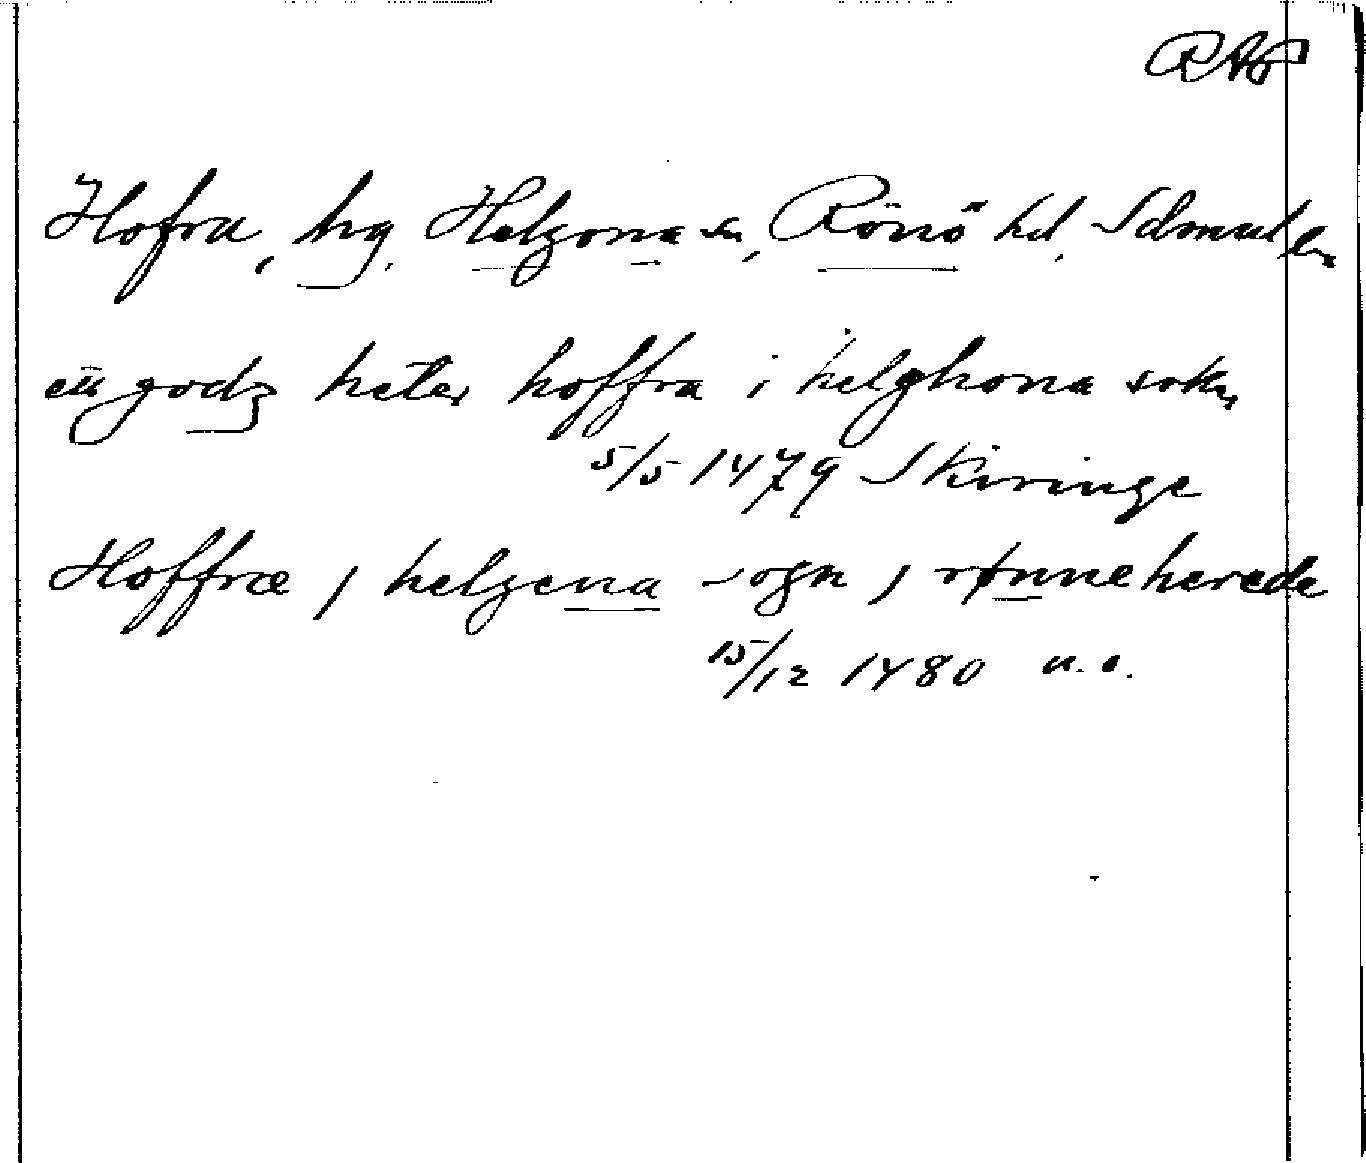 RAP
Hofra, hg. Helgona sn, Rönö hd, Sdmanl
en godz heter hoffra i helghona sokn
5/5 1479 Skiringe
Hoffræ j helgena sogn j rønne herede
15/12 1480 u.o.